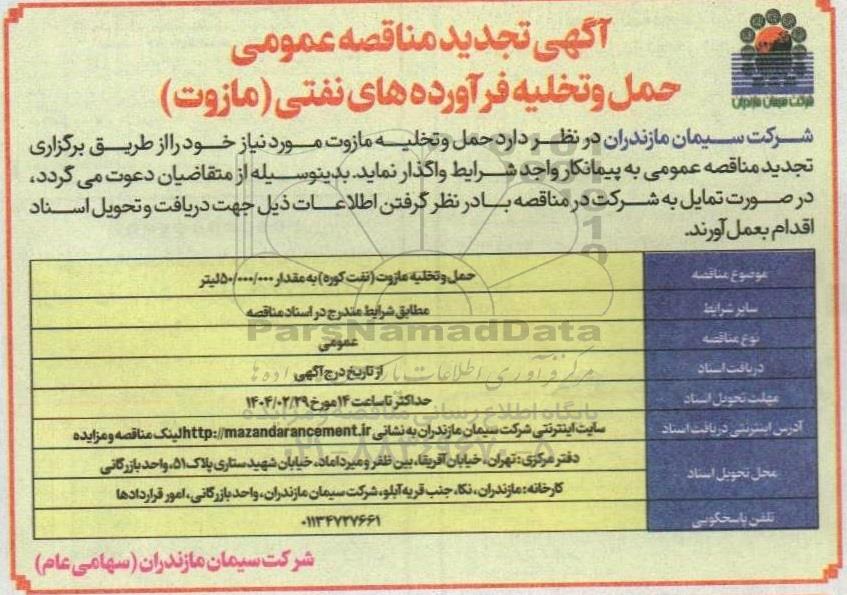 آگهی تجدید مناقصه عمومی
حمل و تخلیه فرآورده های نفتی (مازوت)
شرکت سیمان مازندران
شرکت سیمان مازندران در نظر دارد حمل و تخلیه مازوت مورد نیاز خود را از طریق برگزاری
تجدید مناقصه عمومی به پیمانکار واجد شرایط واگذار نماید. بدینوسیله از متقاضیان دعوت می گردد،
در صورت تمایل به شرکت در مناقصه با در نظر گرفتن اطلاعات ذیل جهت دریافت و تحویل اسناد
اقدام بعمل آورند.
موضوع مناقصه حمل و تخلیه مازوت (نفت کوره) به مقدار ۵۰/۰۰۰/۰۰۰ لیتر
سایر شرایط مطابق شرایط مندرج در اسناد مناقصه
نوع مناقصه عمومی
دریافت اسناد از تاریخ درج آگهی
مهلت تحویل اسناد حداکثر تا ساعت ۱۴ مورخ ۱۴۰۴/۰۲/۲۹
آدرس اینترنتی دریافت اسناد سایت اینترنتی شرکت سیمان مازندران به نشانی http://mazandarancement.ir لینک مناقصه و مزایده
محل تحویل اسناد دفتر مرکزی: تهران، خیابان آفریقا، بین ظفر و میرداماد، خیابان شهید ستاری پلاک ۵۱، واحد بازرگانی
کارخانه: مازندران، نکا، جنب قریه آبلو، شرکت سیمان مازندران، واحد بازرگانی، امور قراردادها
تلفن پاسخگویی ۰۱۱۳۴۷۲۷۶۶۱
شرکت سیمان مازندران (سهامی عام)
ParsNamadData
پایگاه اطلاع رسانی مناقصه و مزایده